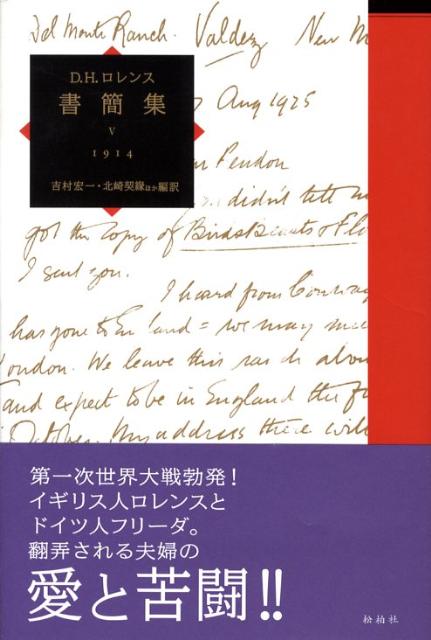 Del Monte Ranch. Valdez New M
D.H.ロレンス
書簡集
V
1914
吉村宏一・北崎契縁ほか編訳
Aug 1925
Pendon
didn't tell m
got the copy of Birds Beasts & Flo
I sent you.
I heard from Conway
has gone to England = we may
London. We leave this ranch abou
and expect to be in England the fi
October. My address there will
第一次世界大戦勃発！
イギリス人ロレンスと
ドイツ人フリーダ。
翻弄される夫婦の
愛と苦闘!!
松柏社